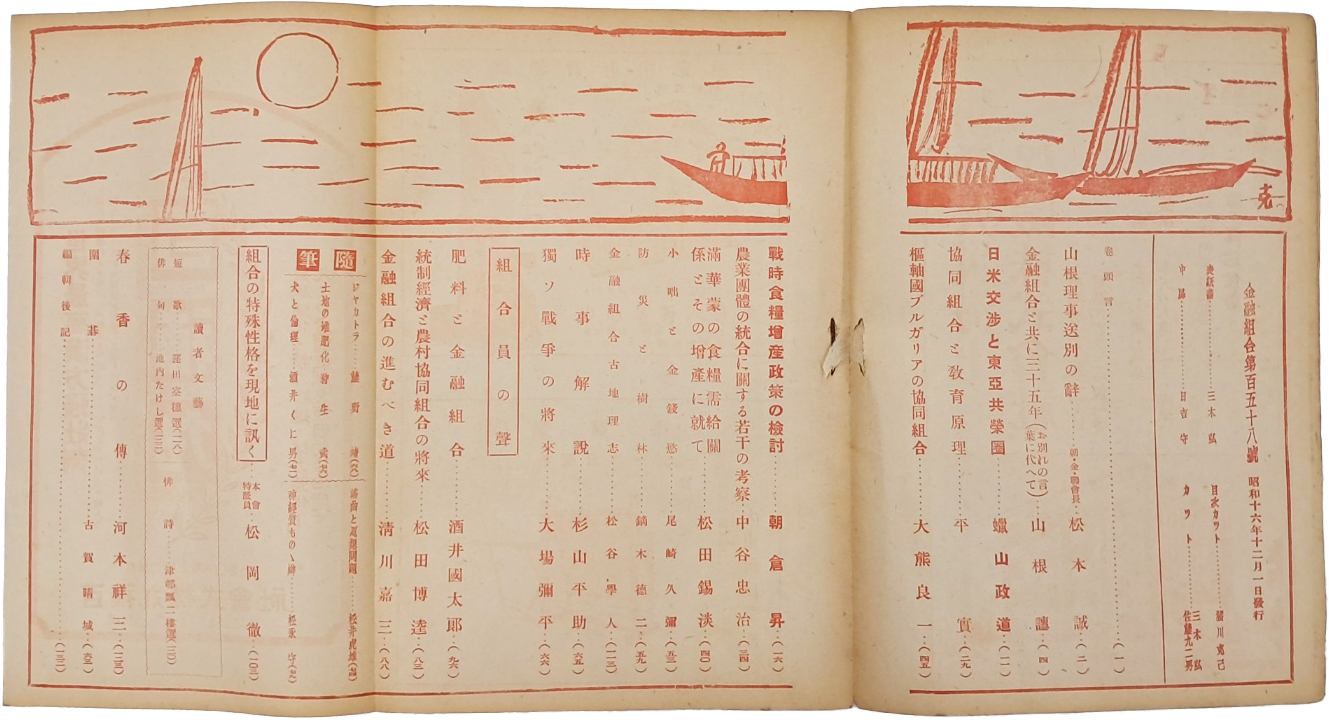 金融組合第百五十八號 昭和十六年十二月一日發行
表紙畫 三木弘
目次カツト 細川克己
中扉 日吉守
カツト 三木弘
佐藤九二男
卷頭言 (一)
山根理事送別の辭 朝金・聯會長 松本誠 (二)
金融組合と共に三十五年(お別れの言葉に代へて) 山根譓 (四)
日米交渉と東亞共榮圈 蠟山政道 (一一)
協同組合と敎育原理 平實 (二九)
樞軸國ブルガリアの協同組合 大熊良一 (四五)
戰時食糧增産政策の檢討 朝倉昇 (一六)
農業團體の統合に關する若干の考察 中谷忠治 (三四)
滿華蒙の食糧需給關係とその增産に就て 松田錫淡 (四〇)
小咄と金錢慾 尾崎久彌 (五三)
防災と樹林 鏑木德二 (五九)
金融組合古地理志 松谷學人 (一一三)
時事解說 杉山平助 (六五)
獨ソ戰爭の將來 大場彌平 (六六)
組合員の聲
肥料と金融組合 酒井國太郞 (九六)
統制經濟と農村協同組合の將來 松田博逵 (八三)
金融組合の進むべき道 淸川嘉三 (八八)
隨筆
ジヤカトラ
謠曲と 松井虎雄
土地の堆肥化
犬と倫理 酒井くに男
神經質もの
組合の特殊性格を現地に訊く 本會特派員 松岡徹 (一〇三)
讀者文藝
短歌
俳句 池內たけし選
俳詩
春香の傳 河本祥三 (一二三)
圍碁 古賀晴城
編輯後記
克